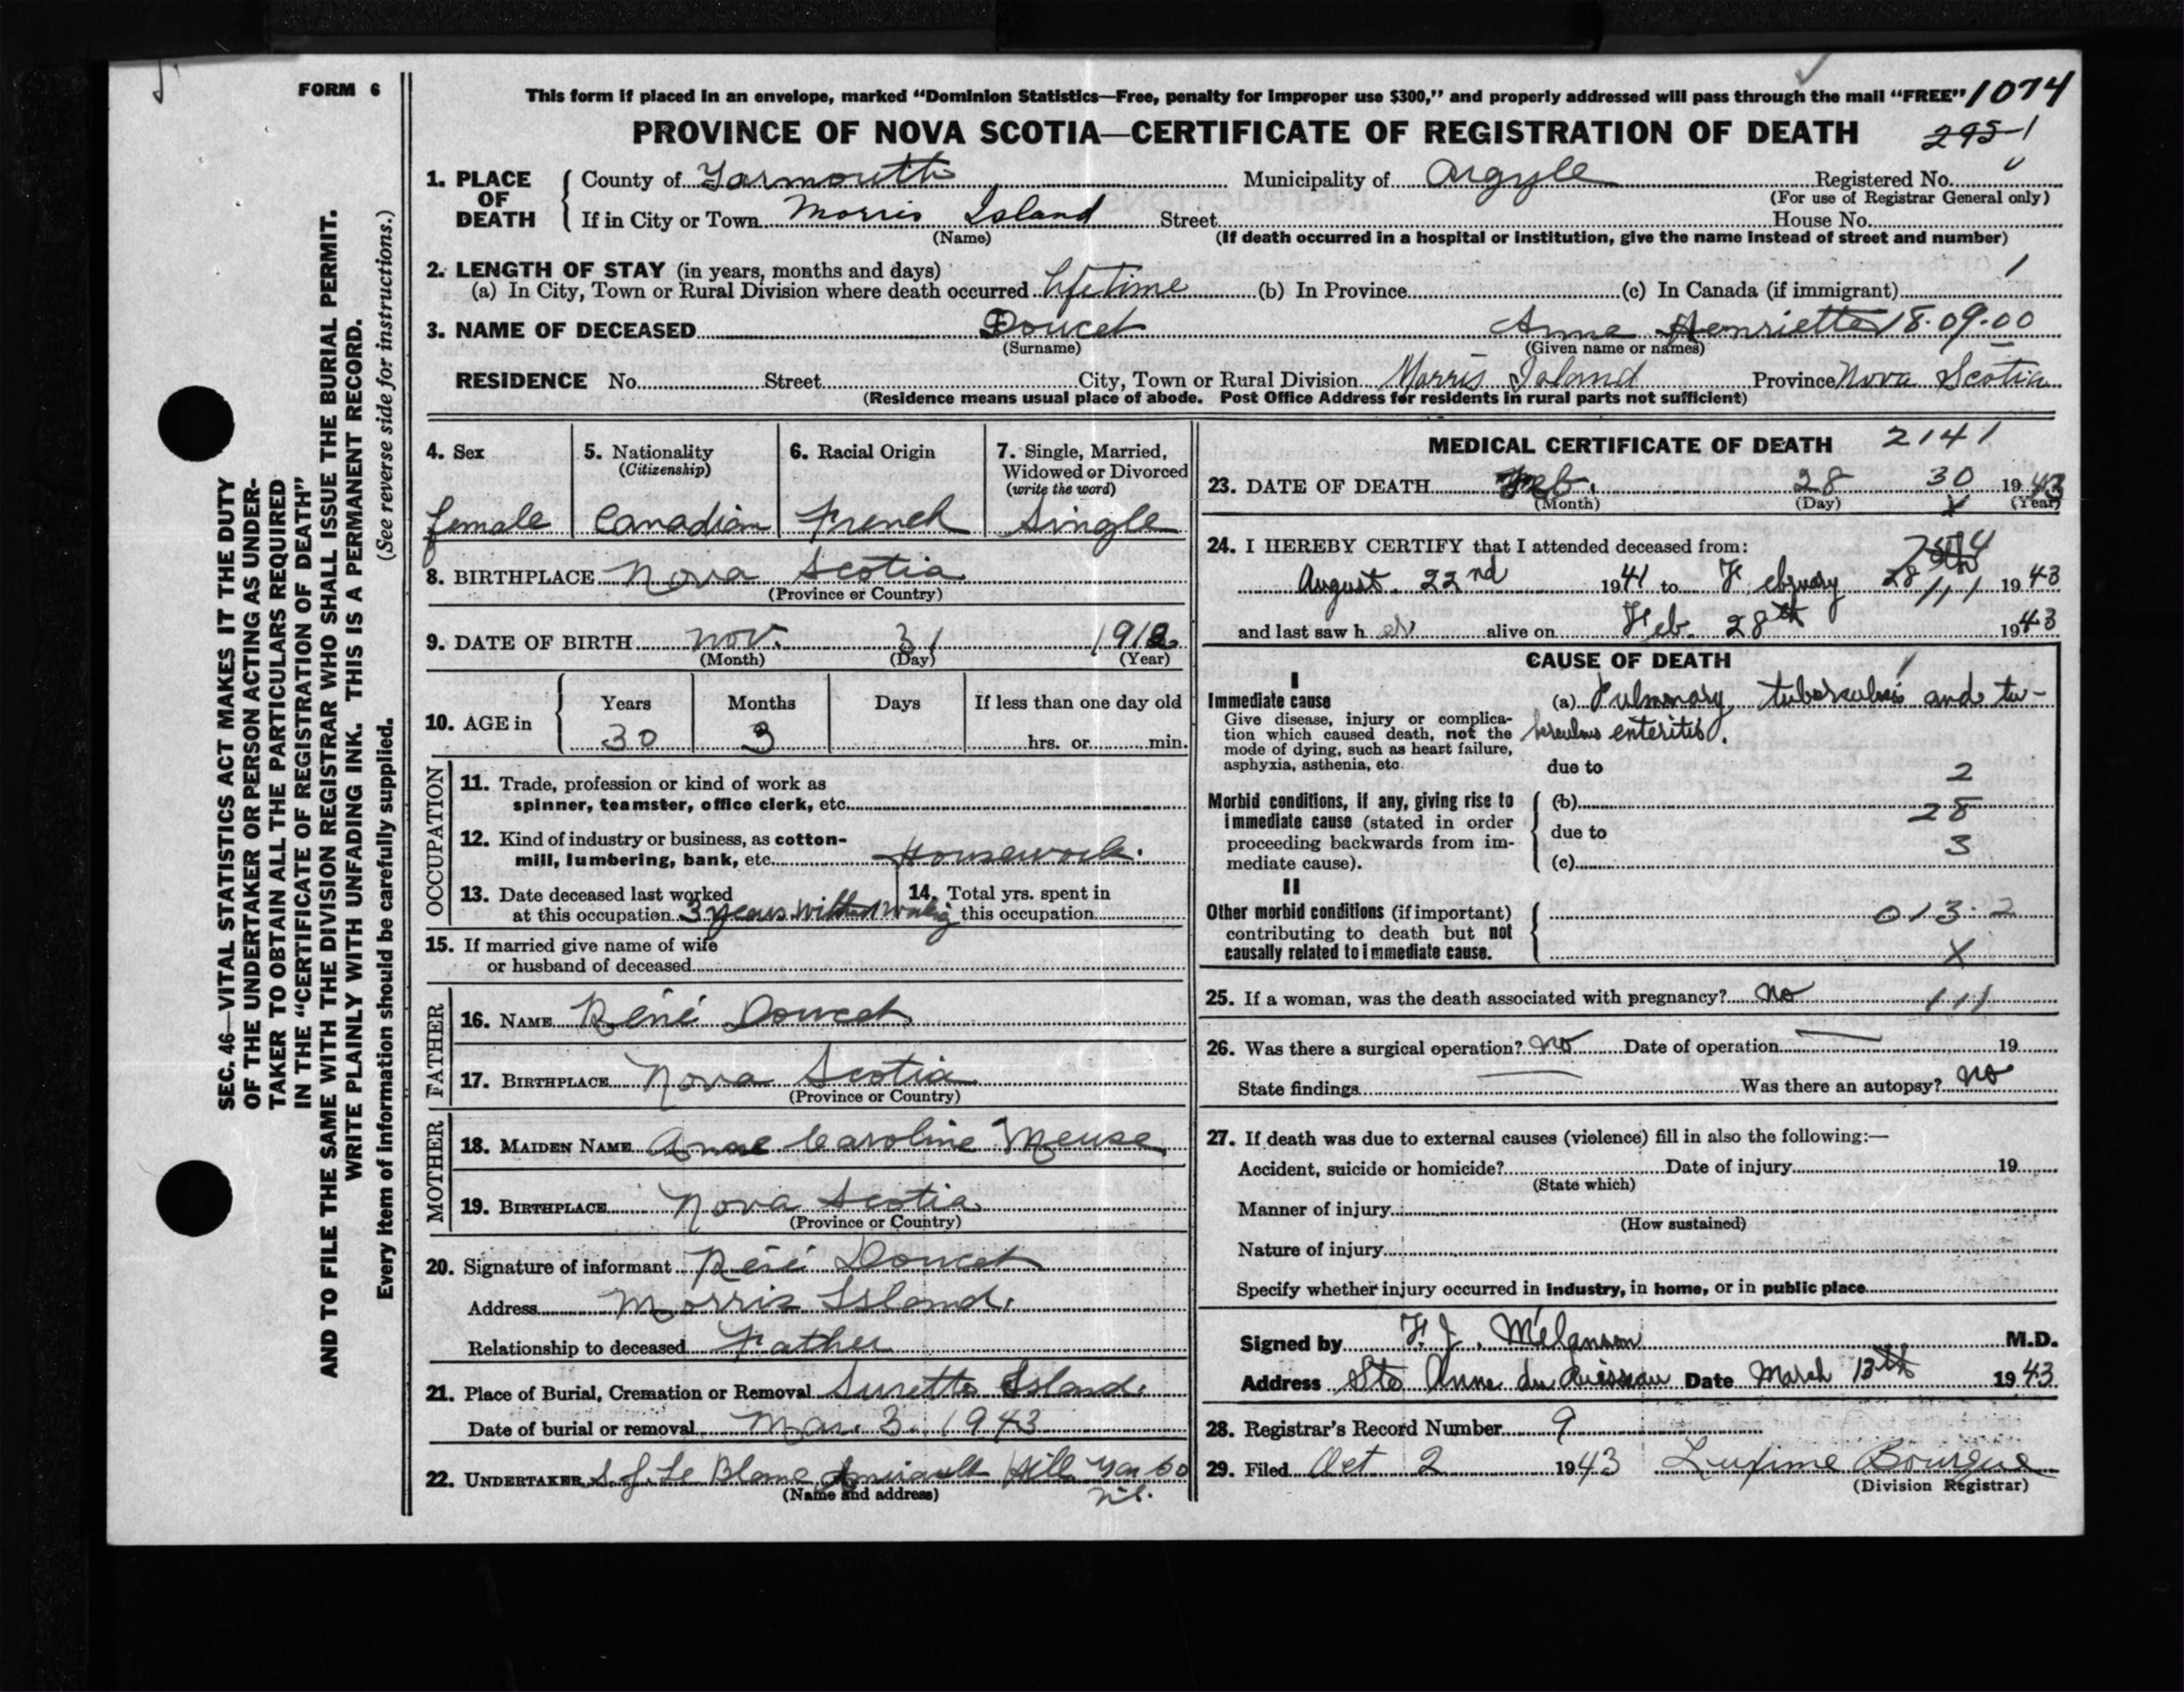 FORM 6
This form if placed in an envelope, marked “Dominion Statistics—Free, penalty for improper use $300,” and properly addressed will pass through the mail “FREE” 1074
PROVINCE OF NOVA SCOTIA—CERTIFICATE OF REGISTRATION OF DEATH 295-1
SEC. 46—VITAL STATISTICS ACT MAKES IT THE DUTY
OF THE UNDERTAKER OR PERSON ACTING AS UNDER-
TAKER TO OBTAIN ALL THE PARTICULARS REQUIRED
IN THE “CERTIFICATE OF REGISTRATION OF DEATH”
AND TO FILE THE SAME WITH THE DIVISION REGISTRAR WHO SHALL ISSUE THE BURIAL PERMIT.
WRITE PLAINLY WITH UNFADING INK. THIS IS A PERMANENT RECORD.
Every item of information should be carefully supplied. (See reverse side for instructions.)
1. PLACE OF DEATH County of Yarmouth Municipality of Argyle Registered No.
(For use of Registrar General only)
If in City or Town Morris Island Street House No.
(Name) (If death occurred in a hospital or institution, give the name instead of street and number)
2. LENGTH OF STAY (in years, months and days) 1
(a) In City, Town or Rural Division where death occurred Lifetime (b) In Province (c) In Canada (if immigrant)
3. NAME OF DECEASED Doucet Anne Henriette 18.09.00
(Surname) (Given name or names)
RESIDENCE No. Street City, Town or Rural Division Morris Island Province Nova Scotia
(Residence means usual place of abode. Post Office Address for residents in rural parts not sufficient)
4. Sex
female
5. Nationality
(Citizenship)
Canadian
6. Racial Origin
French
7. Single, Married,
Widowed or Divorced
(write the word)
Single
8. BIRTHPLACE Nova Scotia
(Province or Country)
9. DATE OF BIRTH Nov. 31 1912
(Month) (Day) (Year)
10. AGE in Years Months Days If less than one day old
30 3 hrs. or min.
OCCUPATION
11. Trade, profession or kind of work as
spinner, teamster, office clerk, etc.
12. Kind of industry or business, as cotton-
mill, lumbering, bank, etc. Housework.
13. Date deceased last worked
at this occupation 3 years without working
14. Total yrs. spent in
this occupation
15. If married give name of wife
or husband of deceased
FATHER
16. NAME Réné Doucet
17. BIRTHPLACE Nova Scotia
(Province or Country)
MOTHER
18. MAIDEN NAME Anne Caroline Meuse
19. BIRTHPLACE Nova Scotia
(Province or Country)
20. Signature of informant Réné Doucet
Address Morris Island.
Relationship to deceased Father
21. Place of Burial, Cremation or Removal Surette Island.
Date of burial or removal Mar. 3. 1943
22. UNDERTAKER S. J. Le Blanc Amirault Hill Yar Co
(Name and address) N.S.
MEDICAL CERTIFICATE OF DEATH 2141
23. DATE OF DEATH Feb. 28 30 1943
(Month) (Day) (Year)
24. I HEREBY CERTIFY that I attended deceased from:
August 22nd 1941 to February 28th 1943
and last saw her alive on Feb. 28th 1943
CAUSE OF DEATH
I
Immediate cause
Give disease, injury or complica-
tion which caused death, not the
mode of dying, such as heart failure,
asphyxia, asthenia, etc.
(a) Pulmonary tuberculosis and tu-
berculous enteritis.
due to 2
Morbid conditions, if any, giving rise to
immediate cause (stated in order
proceeding backwards from im-
mediate cause).
(b) 28
due to
(c) 3
II
Other morbid conditions (if important)
contributing to death but not
causally related to immediate cause.
013.2
X
25. If a woman, was the death associated with pregnancy? no 111
26. Was there a surgical operation? no Date of operation 19
State findings Was there an autopsy? no
27. If death was due to external causes (violence) fill in also the following:—
Accident, suicide or homicide? Date of injury 19
(State which)
Manner of injury
(How sustained)
Nature of injury
Specify whether injury occurred in industry, in home, or in public place
Signed by F. J. Mélanson M.D.
Address Ste Anne du Ruisseau Date March 13th 1943
28. Registrar's Record Number 9
29. Filed Oct 2 1943 Luxime Bourque
(Division Registrar)